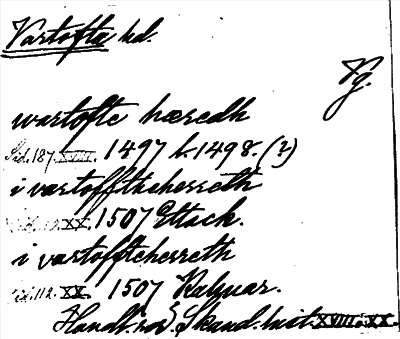 Vartofta hd.
Vg.
wartofte hæredh
Sid. 187. XVIII. 1497 l. 1498. (?)
i vartofftheherreth
XX. 1507
i vartoffteherreth
Sid. 112. XX. 1507 Kalmar.
Handl. rör. Skand. hist. XVIII. XX.